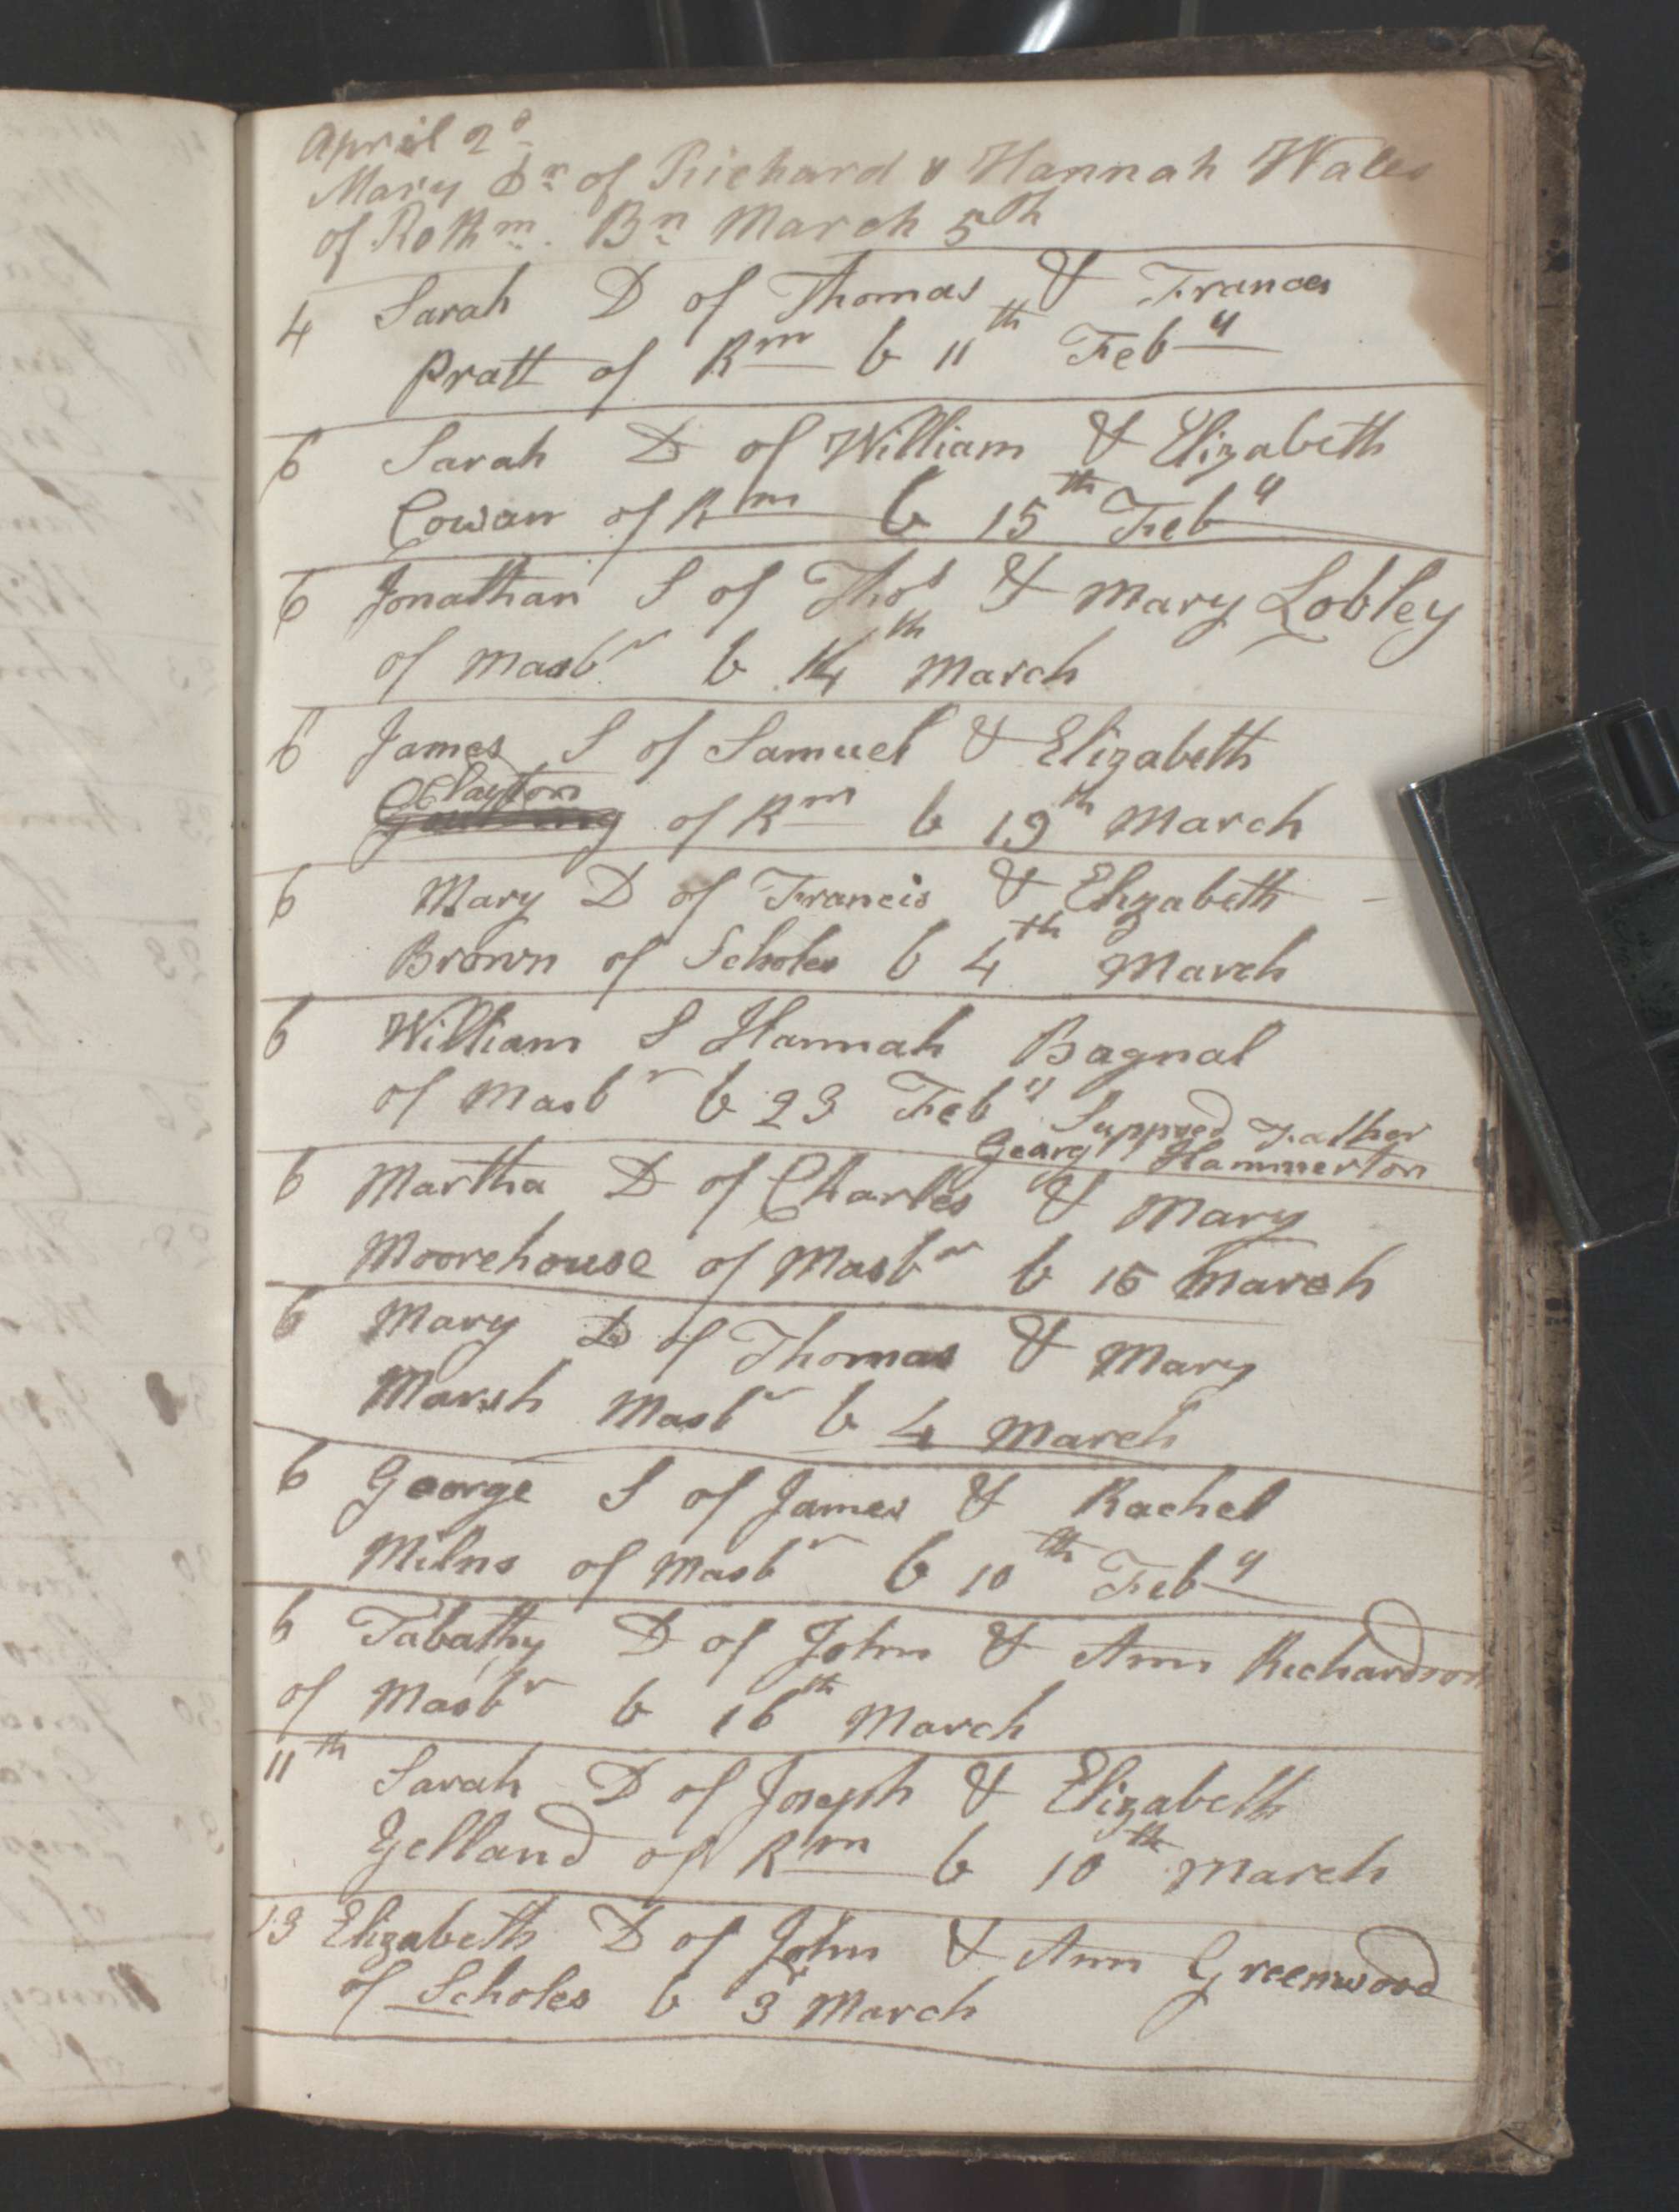 April 2d
Mary Dr of Richard & Hannah Wales
of Rothm. Bn March 5th
4 Sarah D of Thomas & Frances
Pratt of Rm b 11th Feby
6 Sarah D of William & Elizabeth
Cowan of Rm b 15th Feby
6 Jonathan S of Thos & Mary Lobley
of Masbr b 14th March
6 James S of Samuel & Elizabeth
Clayton
of Rm b 19th March
6 Mary D of Francis & Elizabeth
Brown of Scholes b 4th March
6 William S Hannah Bagnal
of Masbr b 23 Feby Supposed Father
Georg Hammerton
6 Martha D of Charles & Mary
Moorehouse of Masbr b 15 March
6 Mary D of Thomas & Mary
Marsh Masbr b 4 March
6 George S of James & Rachel
Milns of Masbr b 10th Feby
6 Tabathy D of John & Ann Richardson
of Masbr b 16th March
11th Sarah D of Joseph & Elizabeth
Jelland of Rm b 10th March
13 Elizabeth D of John & Ann Greenwood
of Scholes b 3d March